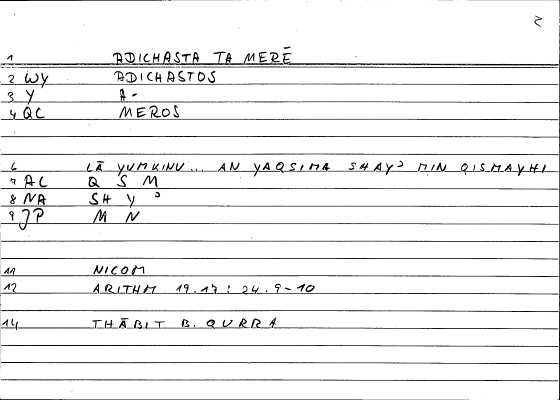 2
1 ADICHASTA TA MERĒ
2 WY ADICHASTOS
3 Y A-
4 QC MEROS
6 LĀ YUMKINU... AN YAQSIMA SHAYʾ MIN QISMAYHI
7 AC Q S M
8 NA SH Y ʾ
9 JP M N
11 NICOM
12 ARITHM 19.17 : 24.9-10
14 THĀBIT B. QURRA